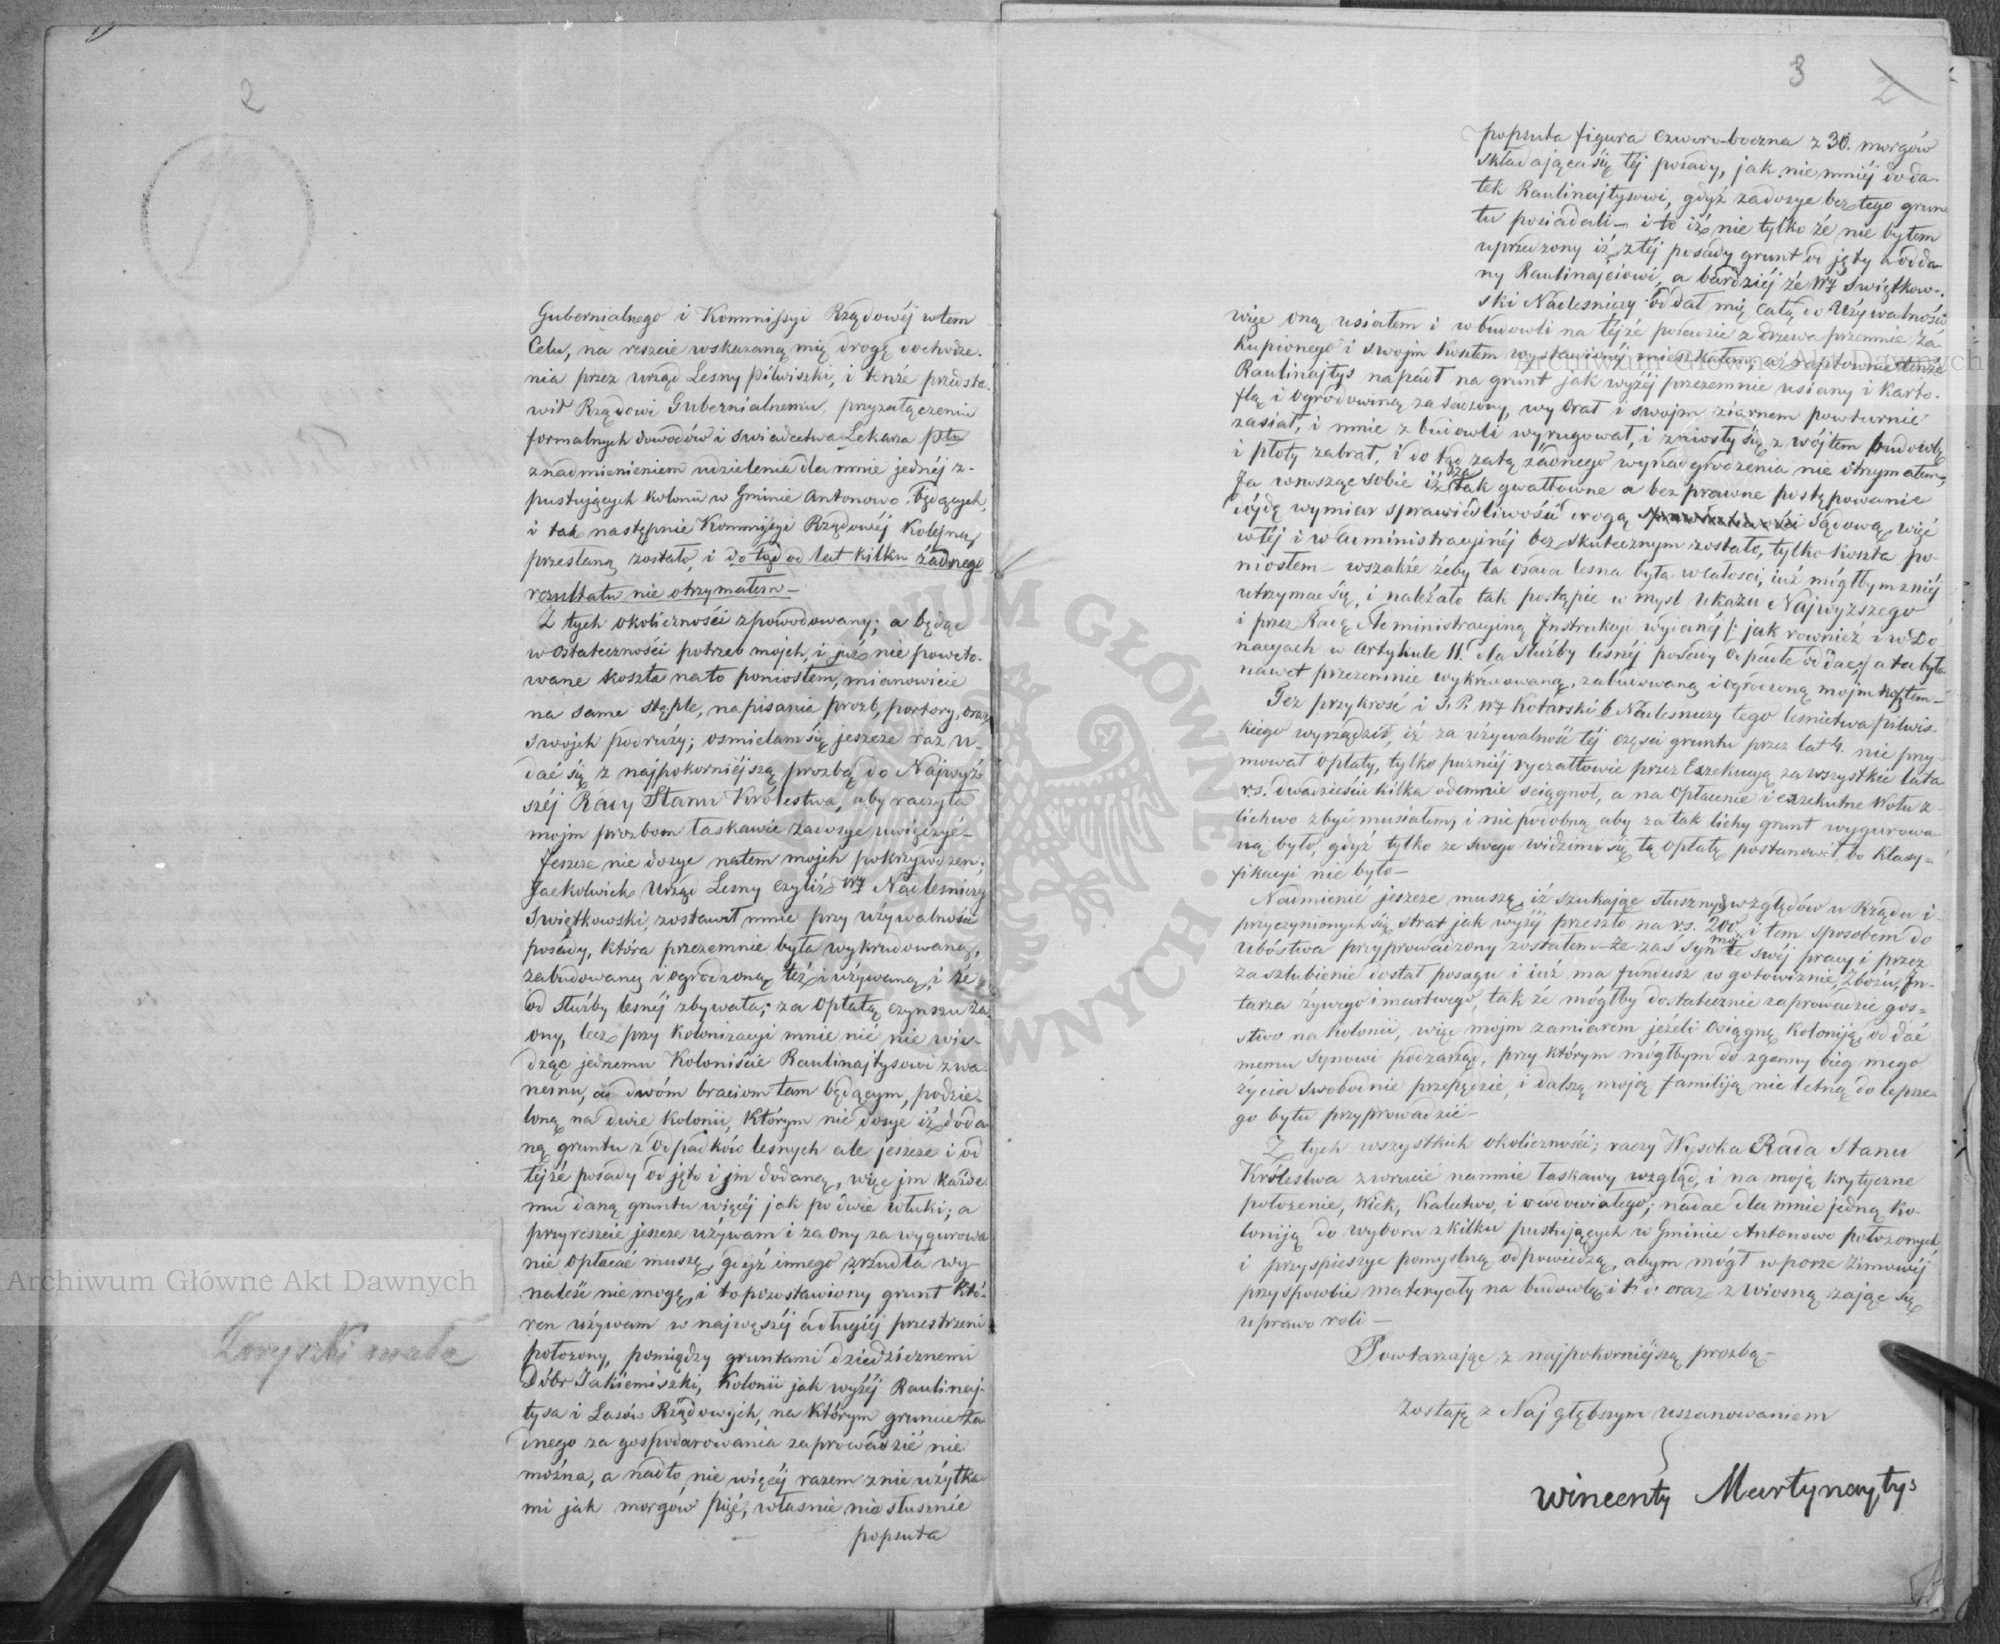 2
Gubernialnego i Kommissyi Rządowéj w tem
Celu, na reszcie wskazaną mię drogę dochodze-
nia przez urząd Lesny Pilwiszki, i tenże przedsta-
wił Rządowi Gubernialnemu, przy załączeniu
formalnych dowodów i swiadectwa Lekarza
z nadmienieniem udzielenia dla mnie jednéj z-
pustujących kolonii w Gminie Antonowo będących,
i tak następnie Kommissyi Rządowéj Koleyną
przesłaną zostało, i do tąd od lat kilku żadnego
rezultatu nie otrzymałem —
Z tych okoliczności spowodowany; a będąc
w ostateczności potrzeb mojch, i już nie poweto-
wane koszta na to poniosłem, mianowicie
na same stęple, napisania prozb, portory, oraz
swojch podruży; osmielam się jeszcze raz u-
dać się z najpokorniéjszą prozbą do Najwyż-
széj Rady Stanu Królestwa, aby raczyła
mojm prozbom łaskawie zadosyc uwięczyć —
Jeszcze nie dosyc natem mojch pokrzywdzeń;
Jackolwiek Urząd Lesny czyliż WJ Nadlesniczy
Swiętkowski, zostawił mnie przy używalności
posady, która przezemnie była wykrudowaną,
zabudowaną i ogrodzoną też i używaną, i że
od służby lesnéj zbywała; za opłatą czynszu za
ony, lecz przy kolonizacyi mnie nic nie wie-
dząc jednemu Koloniście Raulinajtysowi zwa-
nemu, a dwóm braciom tam będącym, podzie-
loną na dwie kolonii, którym nie dosyc iż doda-
ną gruntu z odpadków lesnych ale jeszcze i od
téjże posady odjęto i jm dodaną, więc jm każde-
mu daną gruntu więcéj jak po dwie włuki; a
przy reszcie jeszcze używam i za ony za wygurowa-
nie opłacać muszę, gdyż innego zrzudła wy-
naleść nie mogę, i to pozostawiony grunt któ-
ren używam w najwęszéj a długiéj przestrzeni
położony, pomiędzy gruntami dziedzicznemi
Dóbr Jakiemiszki, Kolonii jak wyżéj Raulinaj-
tysa i Lasów Rządowych, na którym gruncie ża-
dnego za gospodarowania zaprowadzić nie
można, a nadto nie więcéj razem z nie użytka-
mi jak morgów pięć, własnie nie słusznie
popsuta
Zoryszki małe
3
2
popsuta figura czworo-boczna z 30. morgów
składająca się téj posady, jak niemniéj doda-
tek Raulinajtysowi, gdyż zadosyc bez tego grun-
tu posiadali — i to iż nie tylko że nie byłem
uprzedzony iż z téj posady grunt od jęty a odda-
ny Raulinajciowi, a bardziéj że WJ Swiętkow-
ski Nadlesniczy oddał mię całą do Używalności
więc oną usiałem i w budowli na téjże posadzie z drzewa przezmnie za-
kupionego i swojm kosztem wystawionéj mieszkałem, aż napłownie tenże
Raulinajtys napadł na grunt jak wyżéj przezemnie usiany i karto-
flą i ogrodowiną zasadzony, wy orał i swojm ziarnem powturnie
zasiał, i mnie z budowli wyrugował, i zniosły się z wójtem budowlę
i płoty zabrał, i do tąd zatą żadnego wynadgrodzenia nie otrzymałem,
Ja wnosząc sobie iż za tak gwałtowne a bez prawne postępowanie
dójdę wymiar sprawiedliwości drogą Sądową, więc
w téj i w administracyinéj bez skutecznym zostało, tylko koszta po-
niosłem — wszakże żeby ta osada lesna była w całosci, już mógłbym z niéj
utrzymac się, i należało tak postąpic w mysl Ukazu Najwyzszego
i przez Radę Administracyiną Jnstrukcyi wydanéj /: jak rownież i w Do-
nacyach w Artykule 11. dla służby lesnéj posady odpadłe oddac,/ a ta była
nawet przezemnie wykrudowaną, zabudowaną i ogrodzoną mojm kosztem —
Też przykrosć i S. P. WJ Kotarski b Nadlesniczy tego lesnictwa pilwis-
kiego wyrządził, iż za używalność téj częsci gruntu przez lat 4. nie przy-
mował opłaty, tylko puzniéj ryczałtowie przez Exekucyą za wszystkie lata
r.s. dwadziescia kilka odemnie sciągnoł, a na opłacenie i exzekutne wołu z
lichwo zbyć musiałem, i nie podobną aby za tak lichy grunt wygurowa-
ną było, gdyż tylko ze swego widzimi się tą opłatę postanowił, bo klasy=
fikacyi nie było —
Nadmienić jeszcze muszę, iż szukając słusznych względów u Rządu i
przyczynionych się strat jak wyżéj przeszło na r.s. 200, i tem sposobem do
ubóstwa przyprowadzony zostałem — że zaś syn mój te swój pracy i przez
zaszlubienie dostał posagu i już ma fundusz w gotowiznie, Zbożu, Jn-
tarza żywego i martwego, tak że mógłby dostatecznie zaprowadzić gos=
stwo na Kolonii, więc mojm zamiarem jeżeli osiągnę koloniją oddać
memu Synowi podzarząd, przy którym mógłbym do zgonny bieg mego
życia swobodnie przepędzic, i dalszą moją familiją nie letną do lepsze-
go bytu przyprowadzić —
Z tych wszystkich okoliczności; raczy Wysoka Rada Stanu
Królestwa zwrucić nanmie łaskawy wzgląd, i na moją krytyczne
położenie, Wiek, Kalectwo, i owdowiałego; nadac dla mnie jedną Ko-
loniją do wyboru z kilku pustujących w Gminie Antonowo położonych
i przyspieszyc pomyslną odpowiedzą, abym mógł w porze Zimowéj
przysposobic materyały na budowlę i t: d: oraz z wiosną zająć się
uprawo roli —
Powtarzając z najpokorniéjszą prozbą —
zostaję z Najgłębszym uszanowaniem
Wincenty Martynaytys
Archiwum Główne Akt Dawnych
Archiwum Główne Akt Dawnych
ARCHIWUM GŁÓWNE AKT DAWNYCH